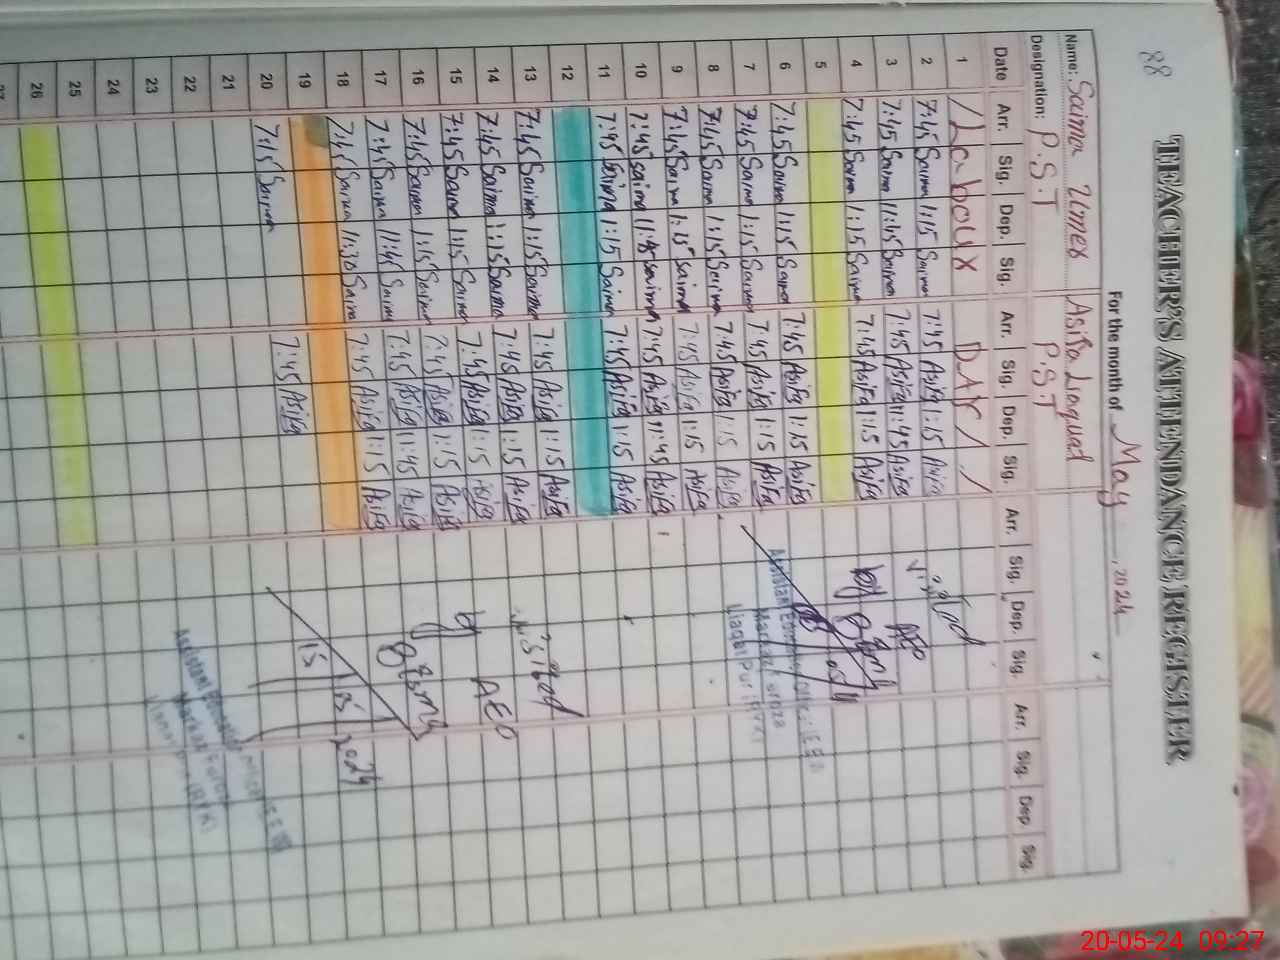 88
TEACHER'S ATTENDANCE REGISTER
For the month of May, 2024
Name: Saima Umer Asifa Liaquad
Designation: P.S.T P.S.T
Date Arr. Sig. Dep. Sig. Arr. Sig. Dep. Sig. Arr. Sig. Dep. Sig. Arr. Sig. Dep Sig.
1 / Labour DAY /
2 7:45 Saima 1:15 Saima 7:45 Asifa 1:15 Asifa
3 7:45 Saima 11:45 Saima 7:45 Asifa 11:45 Asifa
4 7:45 Saima 1:15 Saima 7:45 Asifa 1:15 Asifa
5
6 7:45 Saima 1:15 Saima 7:45 Asifa 1:15 Asifa
7 7:45 Saima 1:15 Saima 7:45 Asifa 1:15 Asifa
8 7:45 Saima 1:15 Saima 7:45 Asifa 1:15 Asifa
9 7:45 Saima 1:15 Saima 7:45 Asifa 1:15 Asifa
10 7:45 Saima 11:45 Saima 7:45 Asifa 11:45 Asifa
11 7:45 Saima 1:15 Saima 7:45 Asifa 1:15 Asifa
12
13 7:45 Saima 1:15 Saima 7:45 Asifa 1:15 Asifa
14 7:45 Saima 1:15 Saima 7:45 Asifa 1:15 Asifa
15 7:45 Saima 1:15 Saima 7:45 Asifa 1:15 Asifa
16 7:45 Saima 1:15 Saima 7:45 Asifa 1:15 Asifa
17 7:45 Saima 11:45 Saima 7:45 Asifa 11:45 Asifa
18 7:45 Saima 11:30 Saima 7:45 Asifa 1:15 Asifa
19
20 7:45 Saima 7:45 Asifa
21
22
23
24
25
26
27
Visited
AEO
by
Assistant Education
Markaz Feroza
Liaqat Pur
Visited
AEO
by
15
2024
Assistant Education
Markaz
20-05-24 09:27